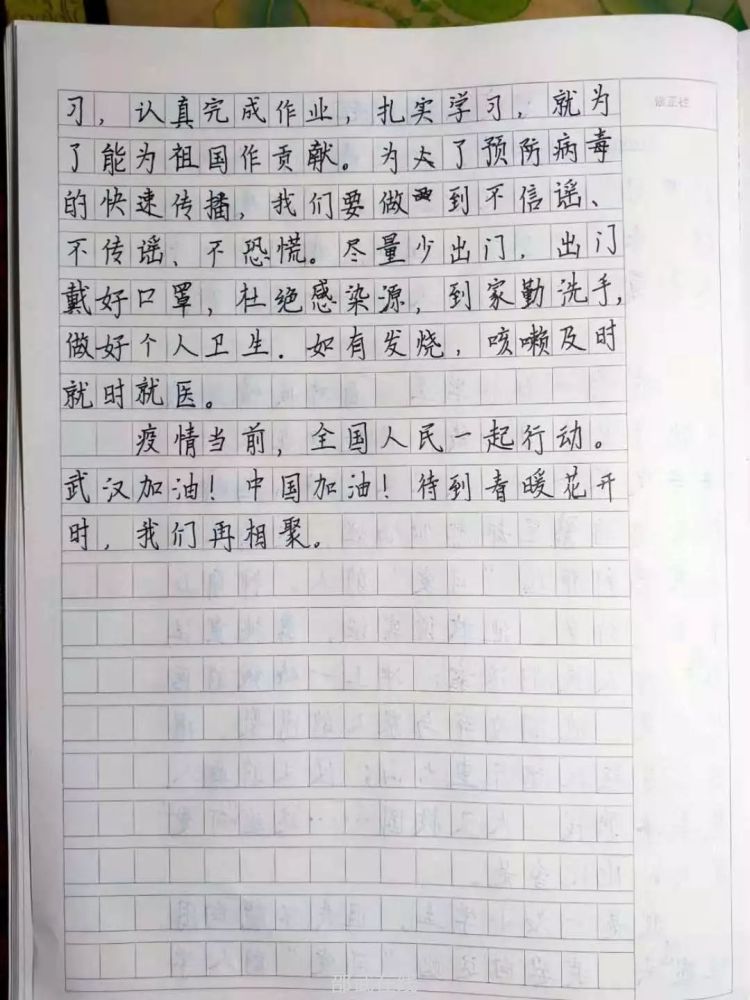 修正栏
习，认真完成作业，扎实学习，就为
了能为祖国作贡献。为了预防病毒
的快速传播，我们要做到不信谣、
不传谣、不恐慌。尽量少出门，出门
戴好口罩，杜绝感染源，到家勤洗手，
做好个人卫生．如有发烧，咳嗽及时
就时就医。
疫情当前，全国人民一起行动。
武汉加油！中国加油！待到春暖花开
时，我们再相聚。